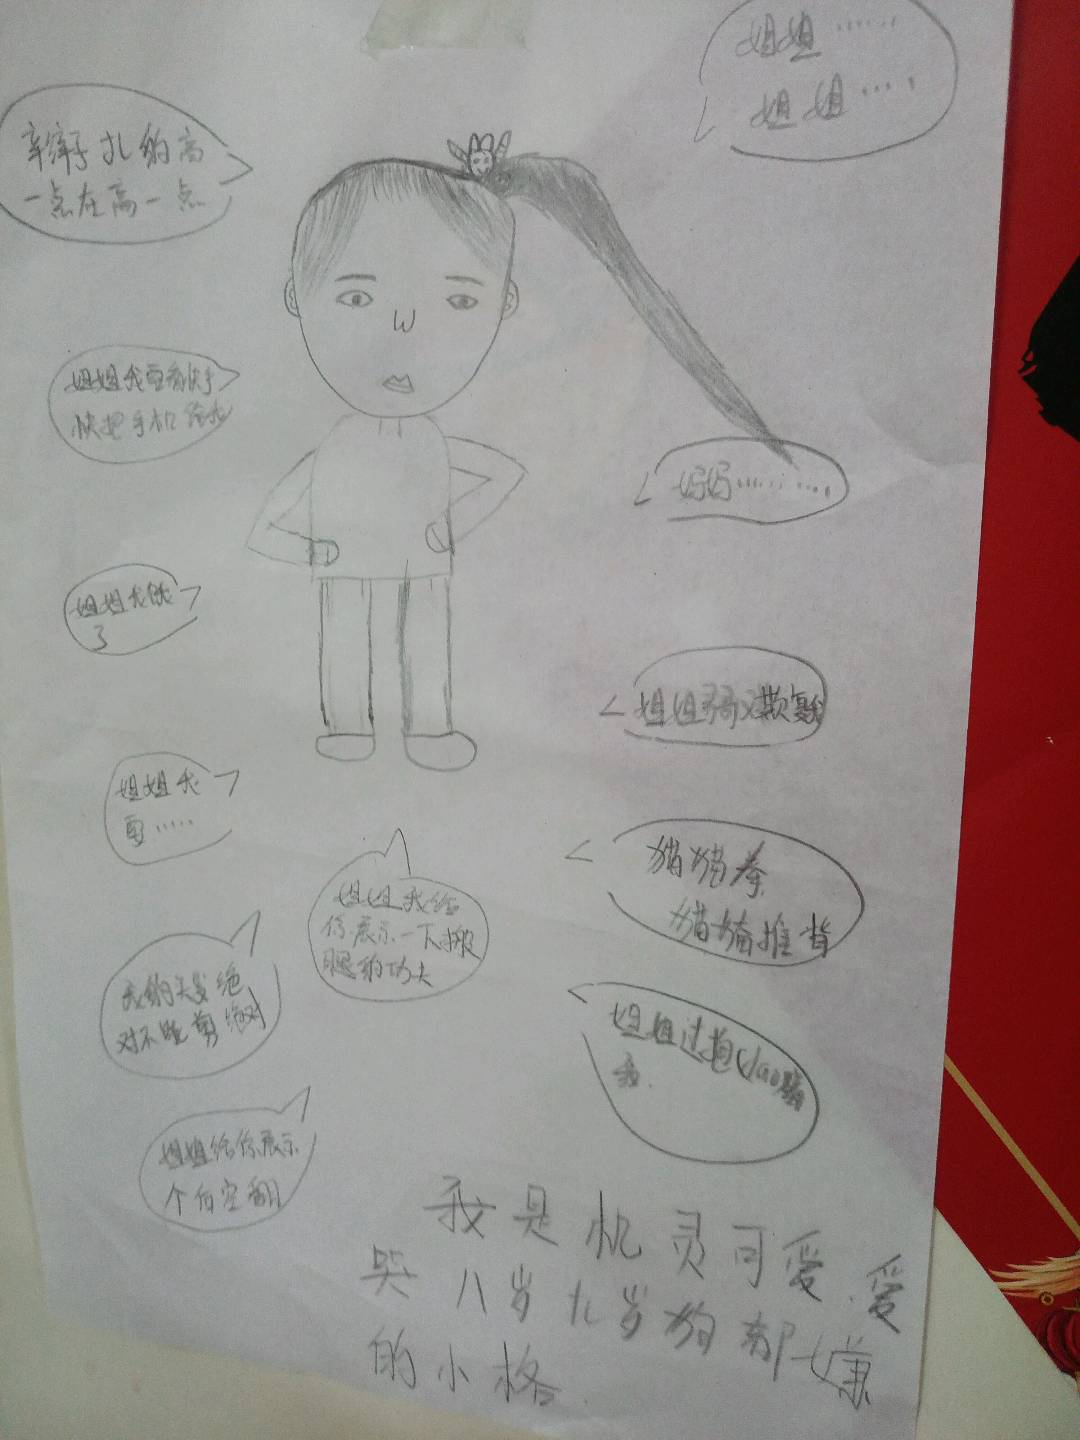 姐姐……
姐姐……
辛辫子扎的高
一点在高一点
姐姐我要看快手
快把手机给我
妈妈…………
姐姐我饿
了
姐姐哥哥又欺负我
姐姐我
要……
猪猪拳
猪猪推背
姐姐我给
你展示一下搬
腿的功夫
我的头发绝
对不能剪绝对
姐姐过抱
我
姐姐给你展示
个后空翻
我是机灵可爱.爱
哭八岁九岁狗都嫌
的小格